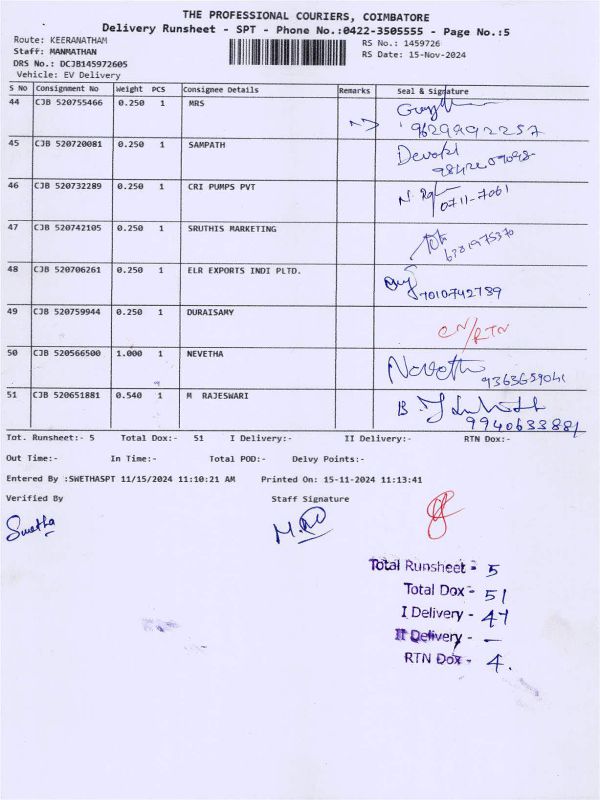 THE PROFESSIONAL COURIERS, COIMBATORE
Delivery Runsheet - SPT - Phone No.:0422-3505555 - Page No.:5
Route: KEERANATHAM
Staff: MANMATHAN
DRS No.: DCJB145972605
Vehicle: EV Delivery
RS No.: 1459726
RS Date: 15-Nov-2024
S No Consignment No Weight PCS Consignee Details Remarks Seal & Signature
44 CJB 520755466 0.250 1 MRS 9629992257
45 CJB 520720081 0.250 1 SAMPATH Devaki
46 CJB 520732289 0.250 1 CRI PUMPS PVT 0711-7061
47 CJB 520742105 0.250 1 SRUTHIS MARKETING
48 CJB 520706261 0.250 1 ELR EXPORTS INDI PLTD. 7010742789
49 CJB 520759944 0.250 1 DURAISAMY CN/RTN
50 CJB 520566500 1.000 1 NEVETHA Nevetha 9363659041
51 CJB 520651881 0.540 1 M RAJESWARI B 9940633881
Tot. Runsheet:- 5 Total Dox:- 51 I Delivery:- II Delivery:- RTN Dox:-
Out Time:- In Time:- Total POD:- Delvy Points:-
Entered By :SWETHASPT 11/15/2024 11:10:21 AM Printed On: 15-11-2024 11:13:41
Verified By Staff Signature
Swetha
Total Runsheet - 5
Total Dox - 51
I Delivery - 47
II Delivery - -
RTN Dox - 4.